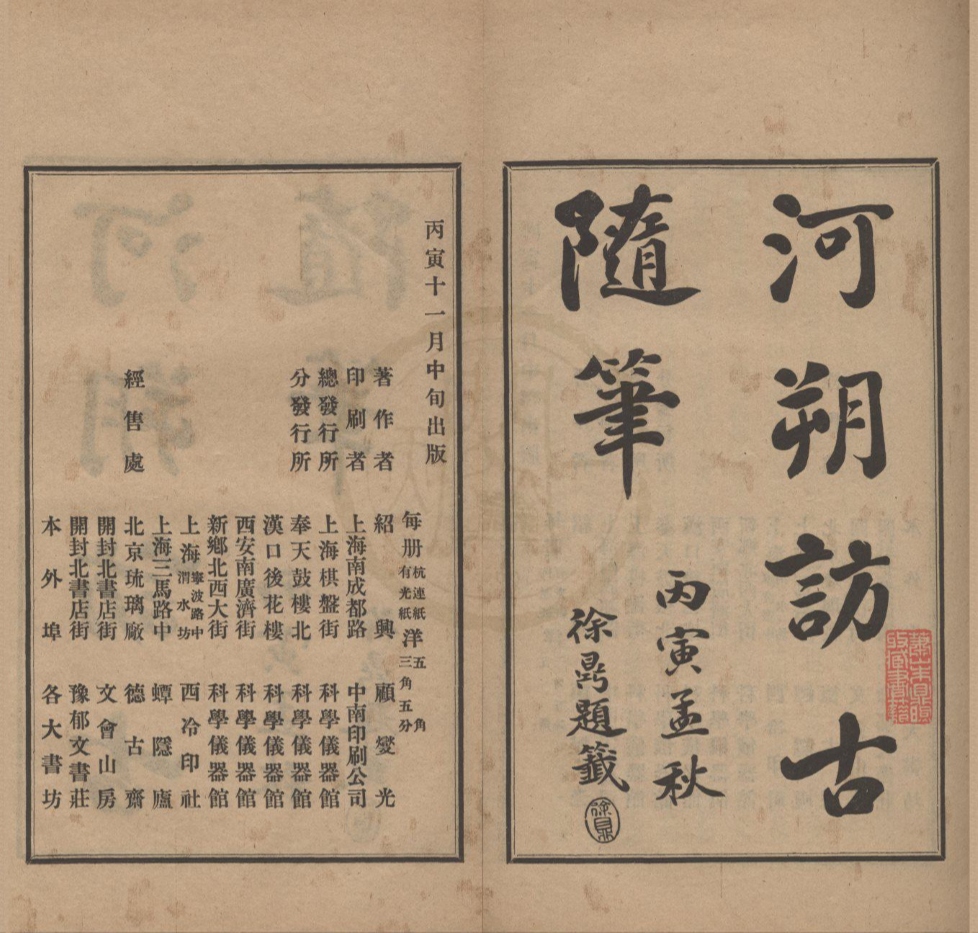 河朔訪古
隨筆
丙寅孟秋
徐鼎題籤
徐鼎
蕭山朱鼎煦收藏書籍
丙寅十一月中旬出版
每册杭連紙有光紙洋五角三角五分
著作者 紹興 顧燮光
印刷者 上海南成都路 中南印刷公司
總發行所 上海棋盤街 科學儀器館
分發行所 奉天鼓樓北 科學儀器館
漢口後花樓 科學儀器館
西安南廣濟街 科學儀器館
新鄉北西大街 科學儀器館
上海寧波路中渭水坊 西冷印社
上海三馬路中 蟫隱廬
經售處 北京琉璃廠 德古齋
開封北書店街 文會山房
開封北書店街 豫郁文書莊
本外埠 各大書坊